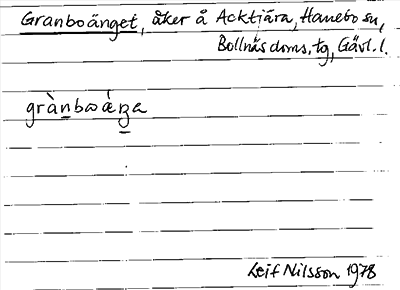 Granboänget, åker å Acktjära, Hanebo sn,
Bollnäs doms. tg, Gävl. l.
grànboáŋa
Leif Nilsson 1978